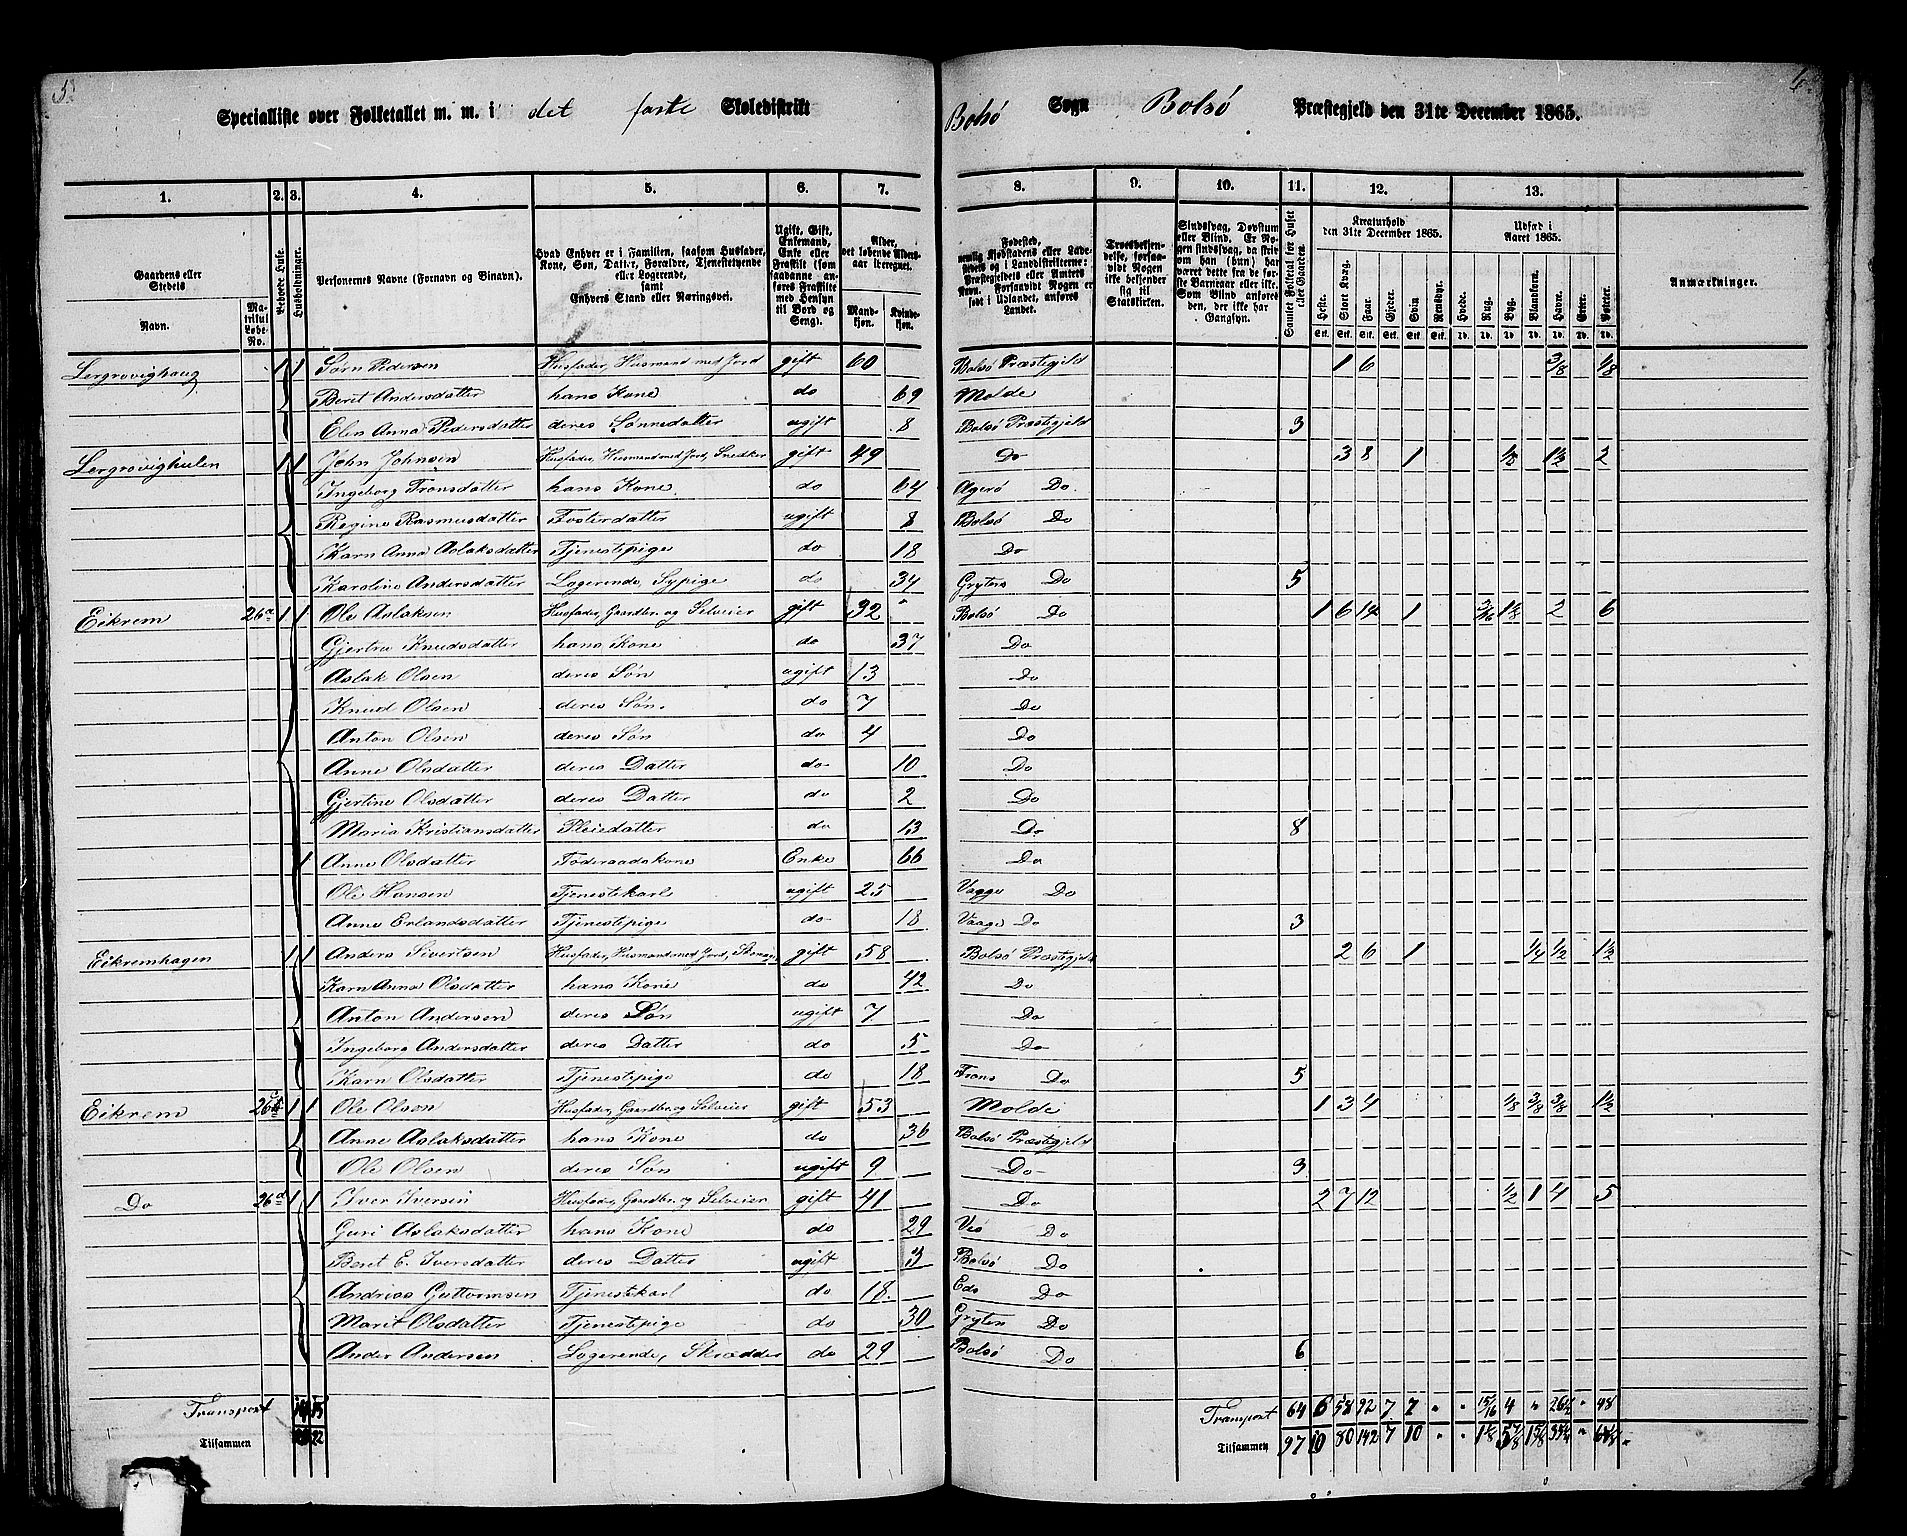 5.
Specialliste over Folketallet m. m. i det første Skoledistrikt
Bolsø Sogn Bolsø Præstegjeld den 31te December 1865.
1. 2. 3. 4. 5. 6. 7. 8. 9. 10. 11. 12. 13.
Gaardens eller Stedets
Navn.
Matrikul Løbe-No.
Beboede Huse.
Husholdninger.
Personernes Navne (Fornavn og Binavn).
Hvad Enhver er i Familien, saasom Husfader, Kone, Søn, Datter, Forældre, Tjenestetyende eller Logerende, samt Enhvers Stand eller Næringsvei.
Ugift, Gift, Enkemand, Enke eller Fraskilt (som saadanne anføres Fraskilte med Hensyn til Bord og Seng).
Alder, det løbende Aldersaar iberegnet.
Mandkjøn. Kvindekjøn.
Fødested, nemlig Kjøbstadens eller Ladestedets og i Landdistrikterne: Præstegjeldets eller Amtets Navn. Forsaavidt Nogen er født i Udlandet, anføres Landet.
Troesbekjendelse, forsaavidt Nogen ikke bekjender sig til Statskirken.
Sindssvag, Døvstum eller Blind. Er Nogen sindssvag, da skrives om han (hun) har været dette fra de første Barneaar eller ikke. Som Blind anføres den, der ikke har Gangsyn.
Samlet Folketal for Huset eller Gaarden.
Kreaturhold den 31te December 1865.
Heste. Stort Kvæg. Faar. Gjeder. Svin. Rensdyr.
Udsæd i Aaret 1865.
Hvede. Rug. Byg. Blandkorn. Havre. Erter. Poteter.
Anmærkninger.
Lergrovighaug 1 1 Søren Pedersen Husfader, Husmand med Jord gift 60 Bolsø Præstegjeld 1 6 3/8 4/8
Berit Andersdatter hans Kone do 69 Molde
Anna Pedersdatter deres Sønnedatter ugift 8 Bolsø Præstegjeld 3
Lergrovighulen 1 1 John Johnsen Husfader, Husmand med Jord, Snedker gift 49 Do 3 8 1 1/8 1 1/2 2
Ingeborg Tronsdatter hans Kone do 64 Agerø Do
Regine Rasmusdatter Fosterdatter ugift 8 Bolsø Do
Karn Anna Aslaksdatter Tjenestepige do 18 Do
Karoline Andersdatter Logerende, Sypige do 34 Gryten Do 5
Eikrem 26a 1 1 Ole Aslaksen Husfader, Gaardbr. og Selveier gift 32 Bolsø Do 1 6 14 1 3/16 1 1/8 2 6
Gjertru Knudsdatter hans Kone do 37 Do
Aslak Olsen deres Søn ugift 13 Do
Knud Olsen deres Søn. do 7 Do
Anton Olsen deres Søn do 4 Do
Anne Olsdatter deres Datter do 10 Do
Gjertine Olsdatter deres Datter do 2 Do
Maria Kristiansdatter Pleiedatter do 13 Do 8
1 Anne Olsdatter Føderaadskone Enke 66 Do
Ole Hansen Tjenestekarl ugift 25 Do
Anne Erlandsdatter Tjenestepige do 18 Vaage Do 3
Eikremhagen 1 1 Anders Sivertsen Husfader, Husmand med Jord, gift 58 Bolsø Præstegjeld 2 6 1 1/4 1/2 1 1/2
Karn Anna Olsdatter hans Kone do 42 Do
Anton Andersen deres Søn ugift 7 Do
Ingeborg Andersdatter deres Datter do 5 Do
Karn Olsdatter Tjenestepige do 18 Do 5
Eikrem 26c 1 1 Ole Olsen Husfader, Gaardbr. og Selveier gift 53 Molde 1 3 4 1/8 3/8 3/8 1 1/2
Anne Aslaksdatter hans Kone do 36 Bolsø Præstegjeld
Ole Olsen deres Søn ugift 9 Do 3
Do 26d 1 1 Iver Iversen Husfader, Gaardbr. og Selveier gift 41 Do 2 7 12 1/2 1 4 5
Guri Aslaksdatter hans Kone do 29 Veø Do
Beret E. Iversdatter deres Datter ugift 3 Bolsø Do
Andrias Guttormsen Tjenestekarl do 18. Do
Marit Olsdatter Tjenestepige do 30 Gryten Do
Ander Andersen Logerende, Skrædder do 29 Bolsø Do 6
Transport 15 Transport 64 6 58 92 7 7 " " 15/16 4 " " 48
Tilsammen 22 Tilsammen 97 10 80 142 7 10 " "